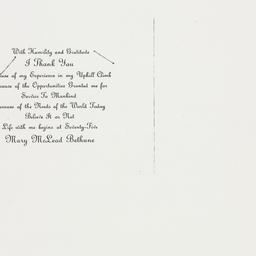 With Humility and Gratitude
I Thank You
ause of my Experience in my Uphill Climb
ause of the Opportunities Granted me for
Service To Mankind
ecause of the Needs of the World Today
Believe It or Not
Life with me begins at Seventy-Five
Mary McLeod Bethune